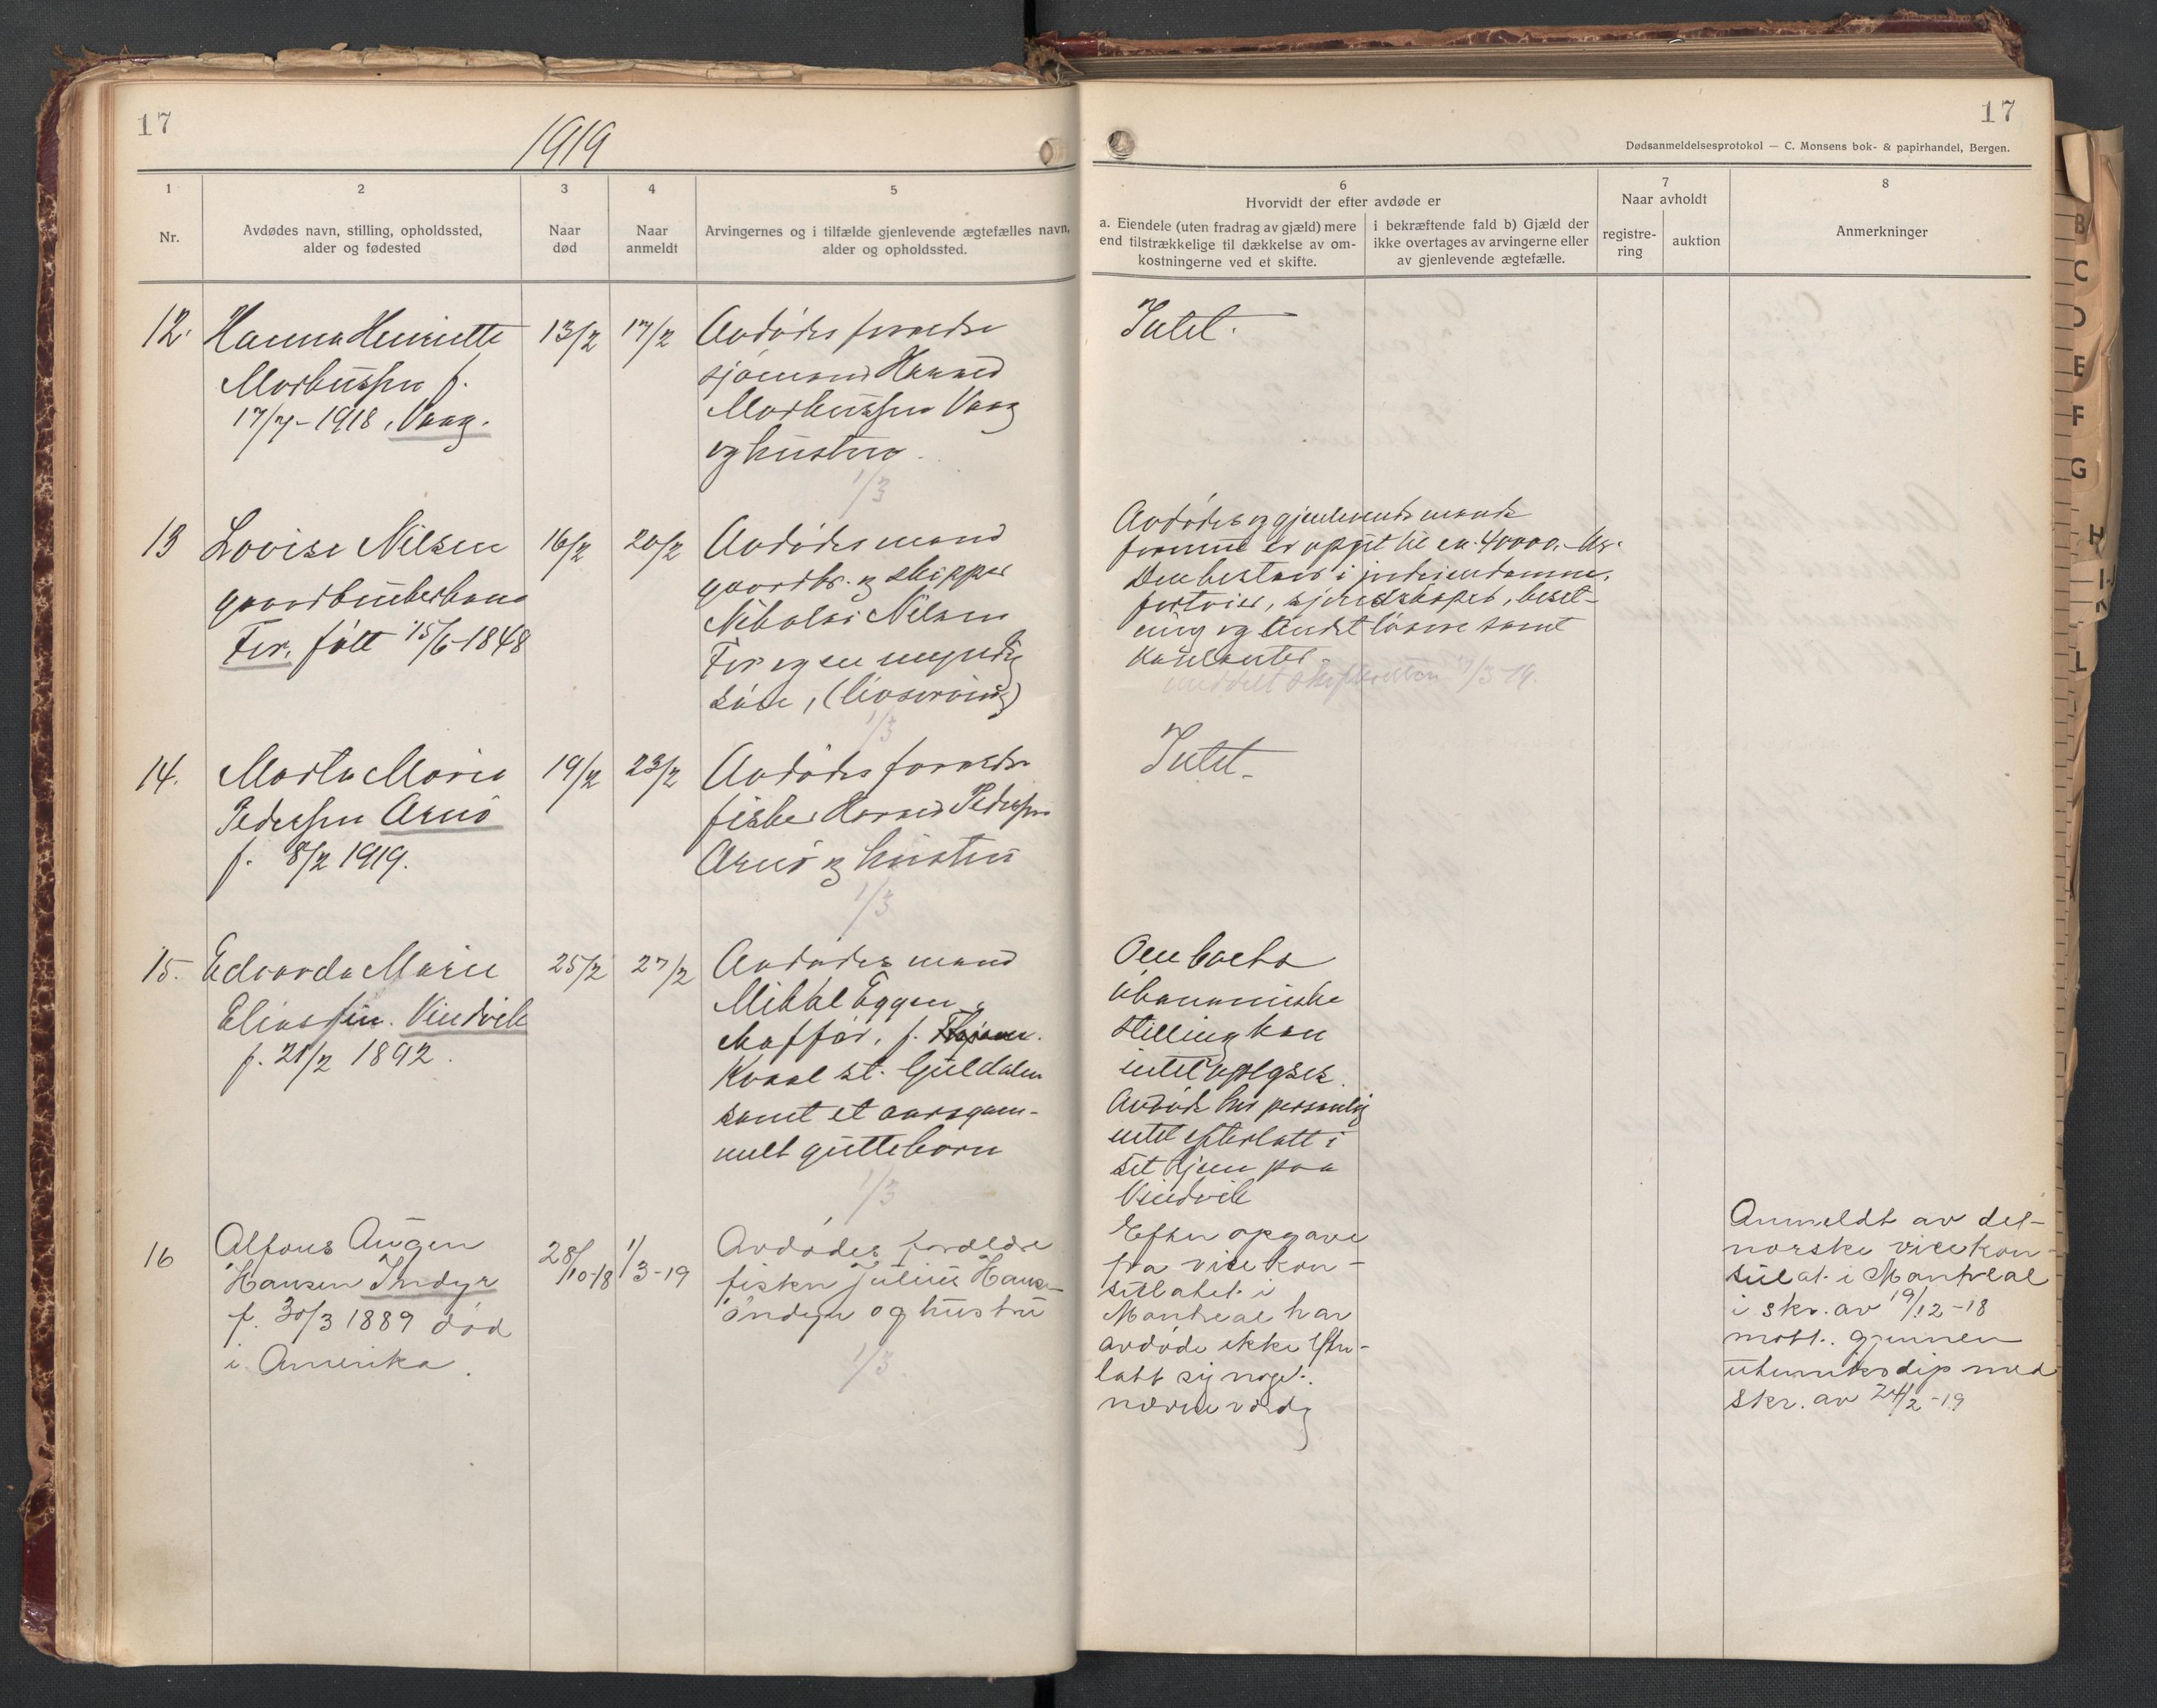 17
1919
1
2
3
4
5
Nr.
Avdødes navn, stilling, opholdssted,
alder og fødested
Naar
død
Naar
anmeldt
Arvingernes og i tilfælde gjenlevende ægtefælles navn,
alder og opholdssted.
12.
Hanna Henriette
Markussen f.
17/7-1918, Vaag.
13/2
17/2
Avdødes forældre
sjømand
Markussen Vaag
og hustru.
1/3
13
Lovise Nilsen
gaardbrukerkone
Fir. født 15/6-1848
16/2
20/2
Avdødes mand
gaardbr. og skipper
Nikolai Nilsen
Fir og en myndig
søn, (livsarving)
1/3
14.
Marta Marie
Pedersen Arnø
f. 8/2 1919.
19/2
23/2
Avdødes forældre
fisker Harald Pedersen
Arnø og hustru
1/3
15.
Edvarda Marie
Eliassen. Vindvik
f. 21/2 1892.
25/2
27/2
Avdødes mand
Mikal Eggen,
chaffør, f.
Kvaal st. Guldalen
samt et aarsgam-
melt guttebarn
1/3
16
Alfons Augen
Hansen Indyr
f. 30/3 1889 død
i Amerika.
28/10-18
1/3-19
Avdødes forældre
fisker Julius Hansen
Indyr og hustru
1/3
17
Dødsanmeldelsesprotokol — C. Monsens bok- & papirhandel, Bergen.
6
Hvorvidt der efter avdøde er
a. Eiendele (uten fradrag av gjæld) mere
end tilstrækkelige til dækkelse av om-
kostningerne ved et skifte.
i bekræftende fald b) Gjæld der
ikke overtages av arvingerne eller
av gjenlevende ægtefælle.
7
Naar avholdt
registre-
ring
auktion
8
Anmerkninger
Intet.
Avdødes og gjenlevende mands
formue er opgit til ca. 40000.- kr.
Den bestaar i jordeiendomme,
fartøier, sjøredskaper, beset-
ning og andet løsøre samt
kontanter.
meddelt skifteretten 1/3-19.
Intet.
Om boets
økonomiske
stilling kan
intet oplyses.
Avdøde har personlig
intet efterlatt i
sit hjem paa
Vindvik
Efter opgave
fra vicekon-
sulatet i
Montreal har
avdøde ikke efter-
latt sig noget
nævneværdig
Anmeldt av det
norske vicekon-
sulat i Montreal
i skr. av 19/12-18
mott. gjennem
utenriksdep med
skr. av 24/2-19
B
C
D
E
F
G
H
I-J
K
L